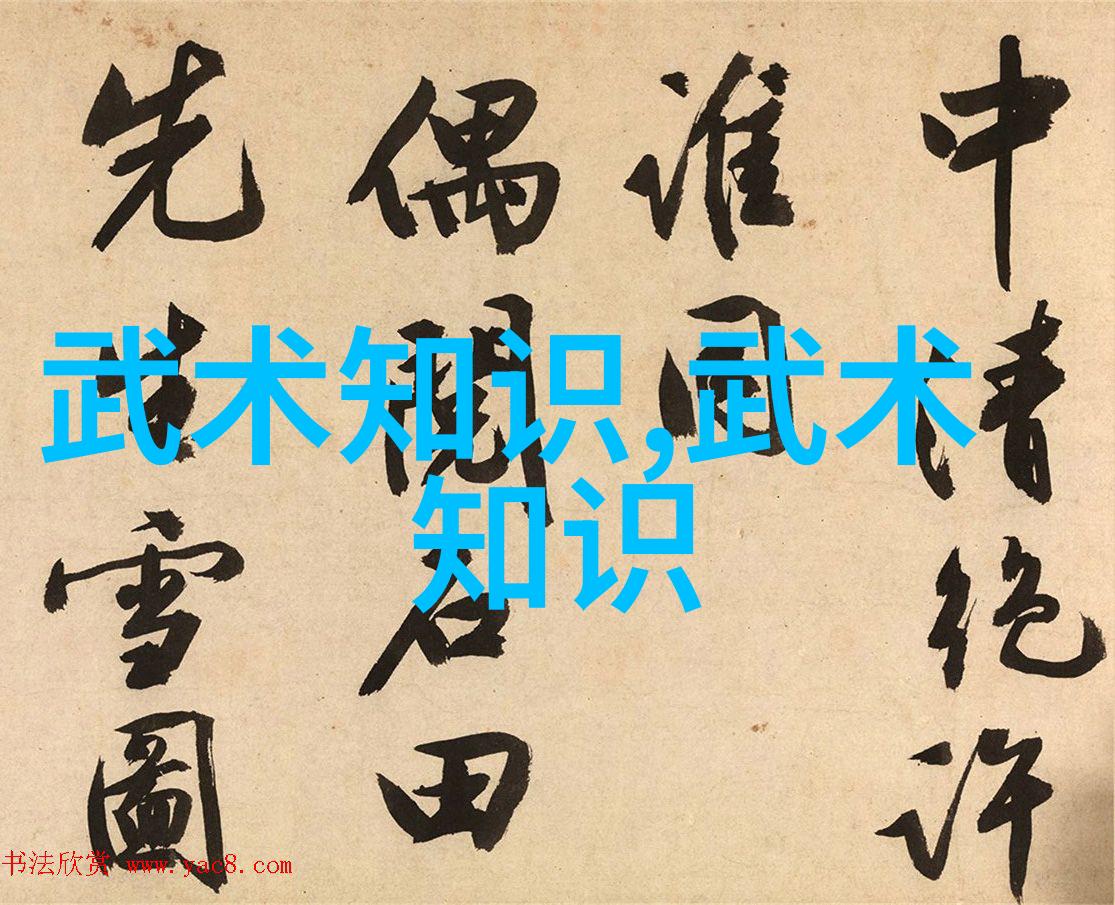 中清絕許
誰同
偶閱石田
先生雪圖
武术知识,武术
知识
书法欣赏 www.yac8.com